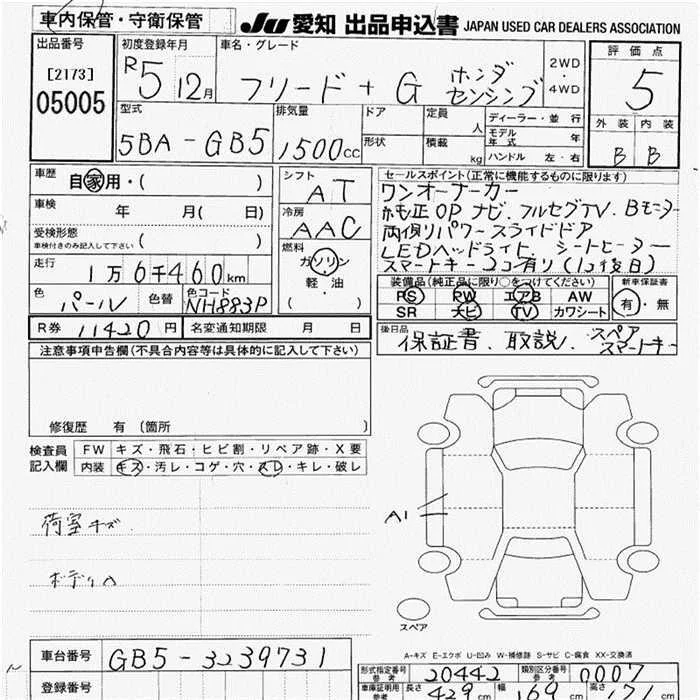 車内保管・守衛保管
JU 愛知 出品申込書 JAPAN USED CAR DEALERS ASSOCIATION
出品番号
[2173]
05005
初度登録年月
R5 12月
車名・グレード
フリード + G ホンダ
センシング
2WD
・
4WD
評価点
5
外装 内装
B B
型式
5BA-GB5
排気量
1500cc
ドア
形状
定員 人
積載 kg
ディーラー・並行
モデル年式 年
ハンドル 左・右
車歴 自家用・( )
車検 年 月( 日)
受検形態
車検付きのみ記入して下さい ( )
走行 1万6千460km
色 パール 色替 色コード NH883P
R券 11420円 名変通知期限 月 日
シフト
AT
冷房
AAC
燃料
ガソリン
・
軽油
( )
セールスポイント(正常に機能するものに限ります)
ワンオーナーカー
純正OPナビ.フルセグTV.Bモニター
両側パワースライドドア
LEDヘッドライト.シートヒーター
スマートキー2コ有り(1コ後日)
装備品(純正品に限り○をつけてください)
PS PW エアB AW
SR ナビ TV カワシート
新車保証書
有・無
後日品
保証書.取説.スペア
スマートキー
注意事項申告欄(不具合内容等は具体的に記入して下さい)
修復歴 有 (箇所 )
検査員
記入欄
FW キズ・飛石・ヒビ割・リペア跡・X要
内装 キズ・汚レ・コゲ・穴・スレ・キレ・破レ
荷室キズ
ボディA
A1
スペア
A-キズ E-エクボ U-凹み W-補修跡 S-サビ C-腐食 XX-交換済
車台番号 GB5-3239731
登録番号
形式指定番号
参考
20442
類別区分番号
参考
0007
車庫証明用
参考
長さ 429cm 幅 169cm 高さ 171cm